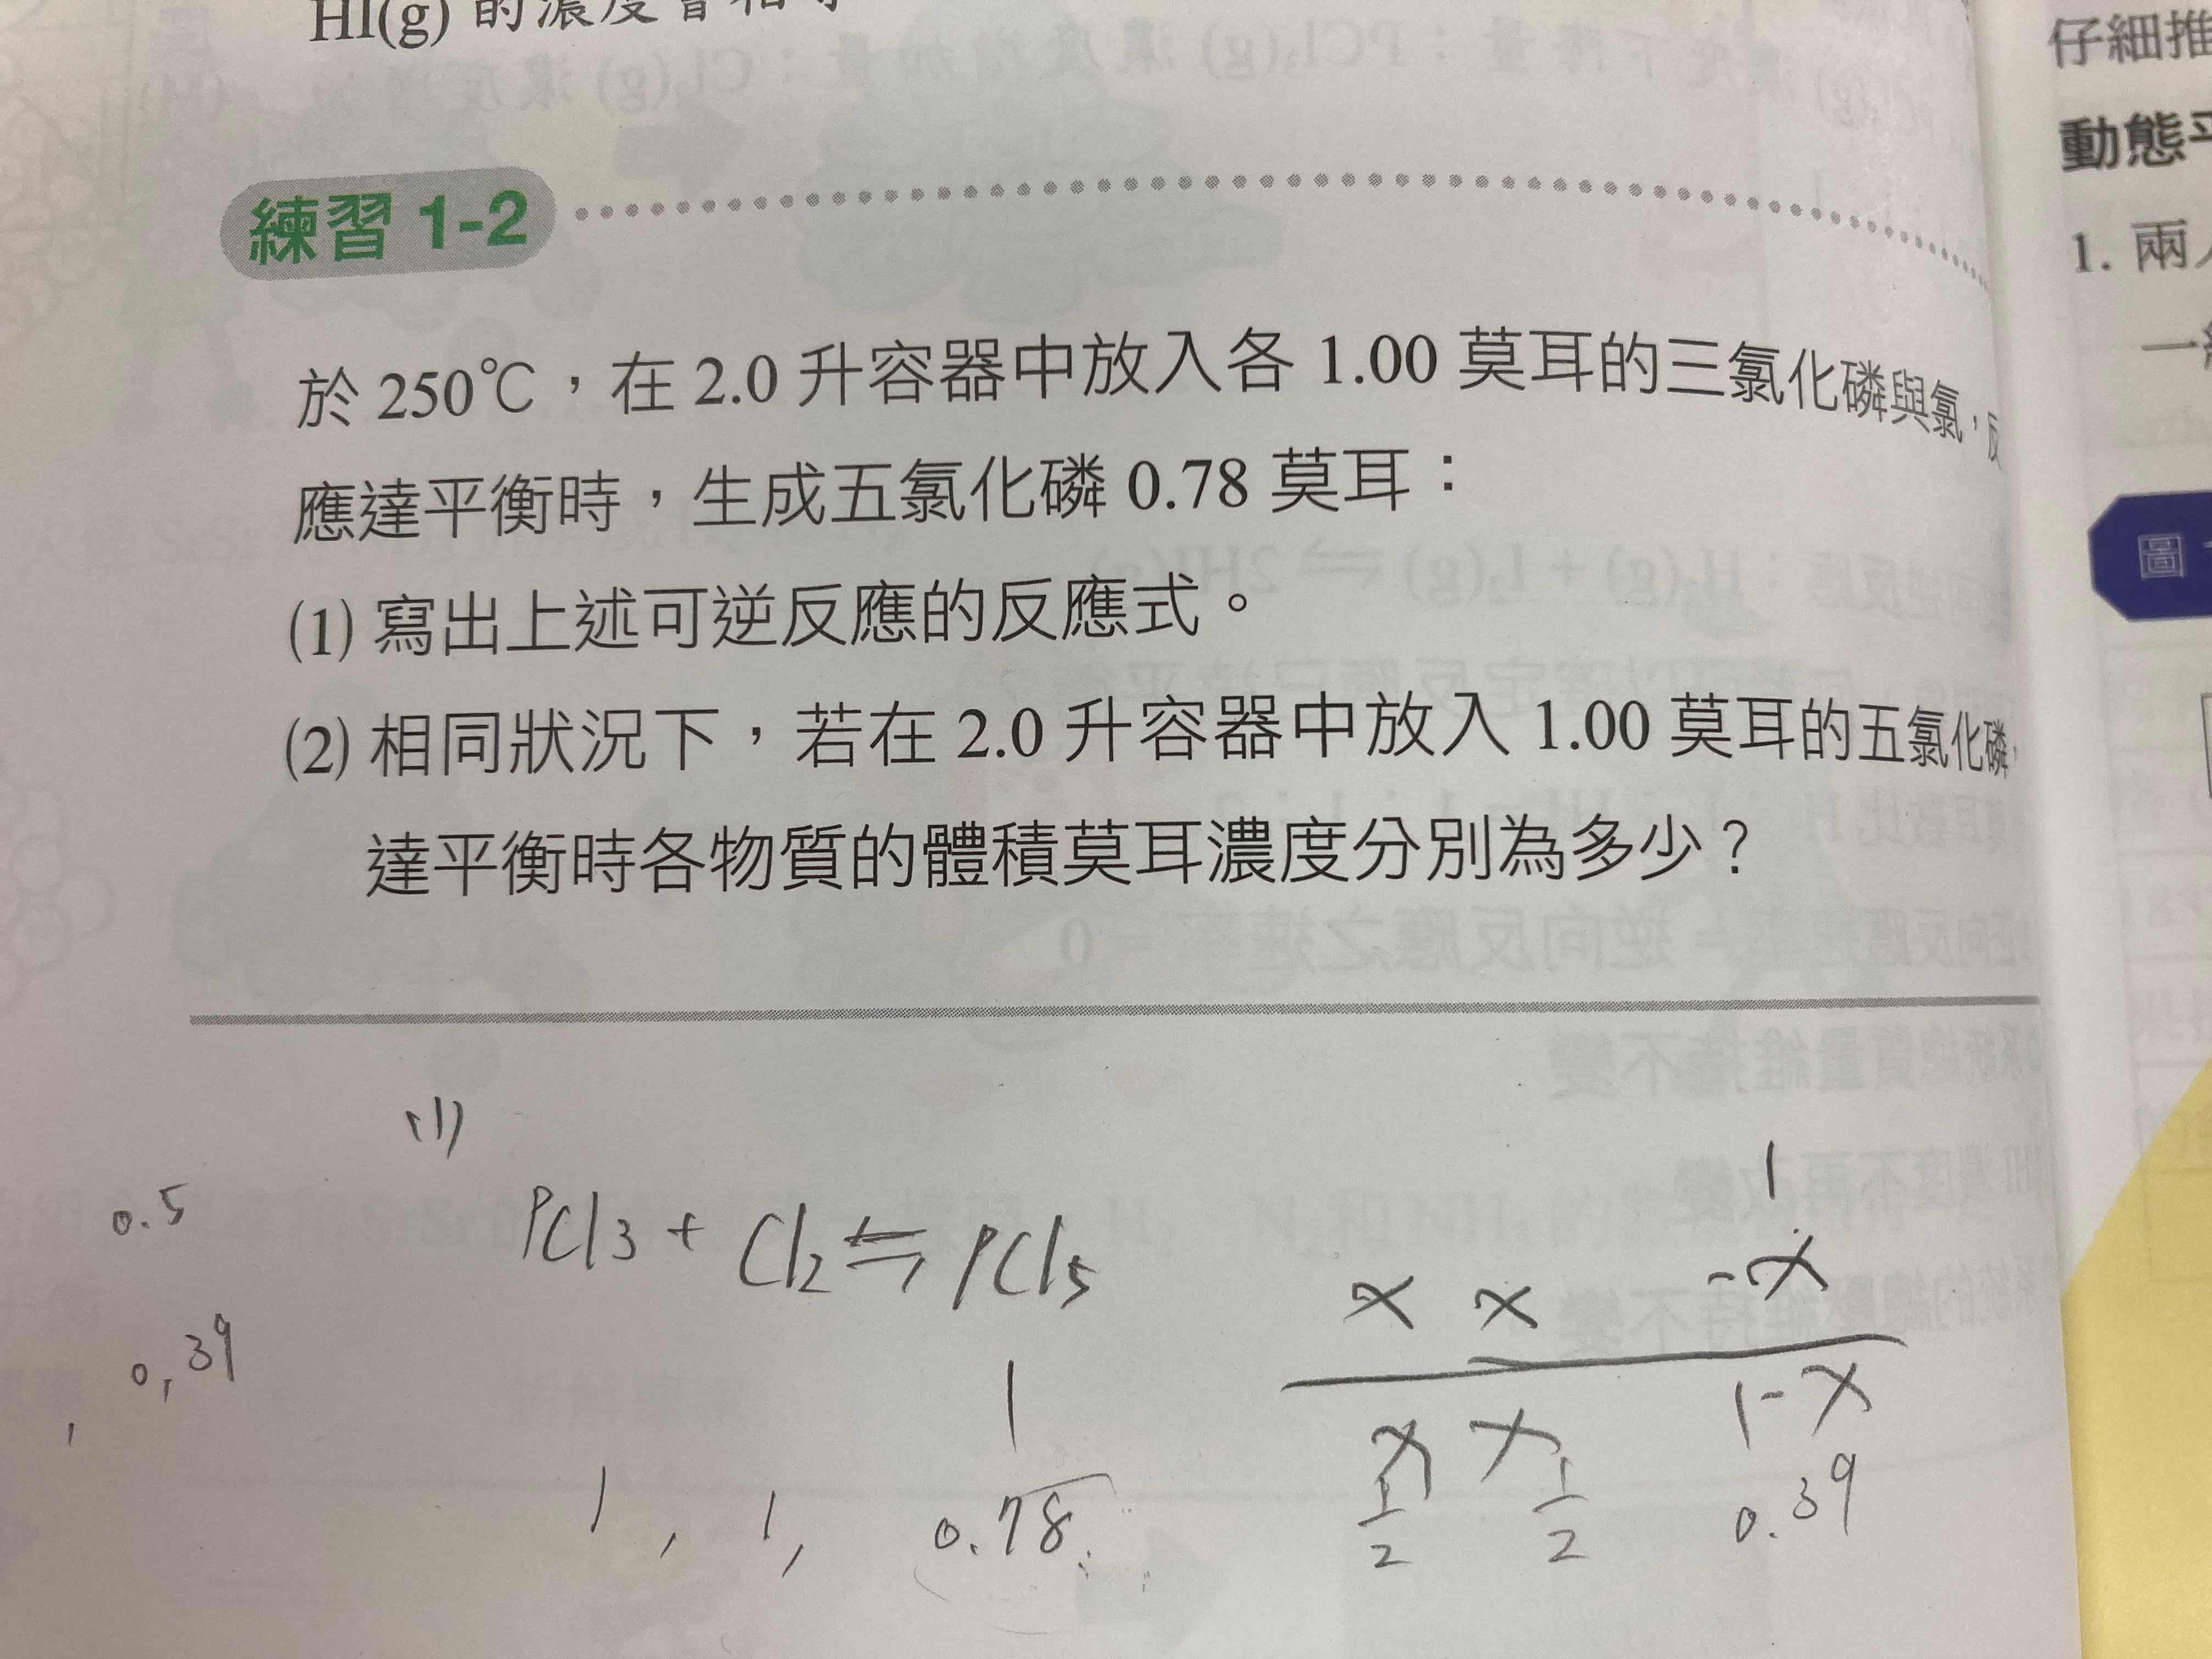 HI(g) 的濃度會相等
練習 1-2
於 250℃，在 2.0 升容器中放入各 1.00 莫耳的三氯化磷與氯，反
應達平衡時，生成五氯化磷 0.78 莫耳：
(1) 寫出上述可逆反應的反應式。
(2) 相同狀況下，若在 2.0 升容器中放入 1.00 莫耳的五氯化磷，
達平衡時各物質的體積莫耳濃度分別為多少？
(1)
PCl3 + Cl2 ⇋ PCl5
0.5
0,39
1
1 , 1, 0.78
1
x x -x
x x 1-x
1/2 1/2 0.39
仔細推
動態平
1. 兩人
圖